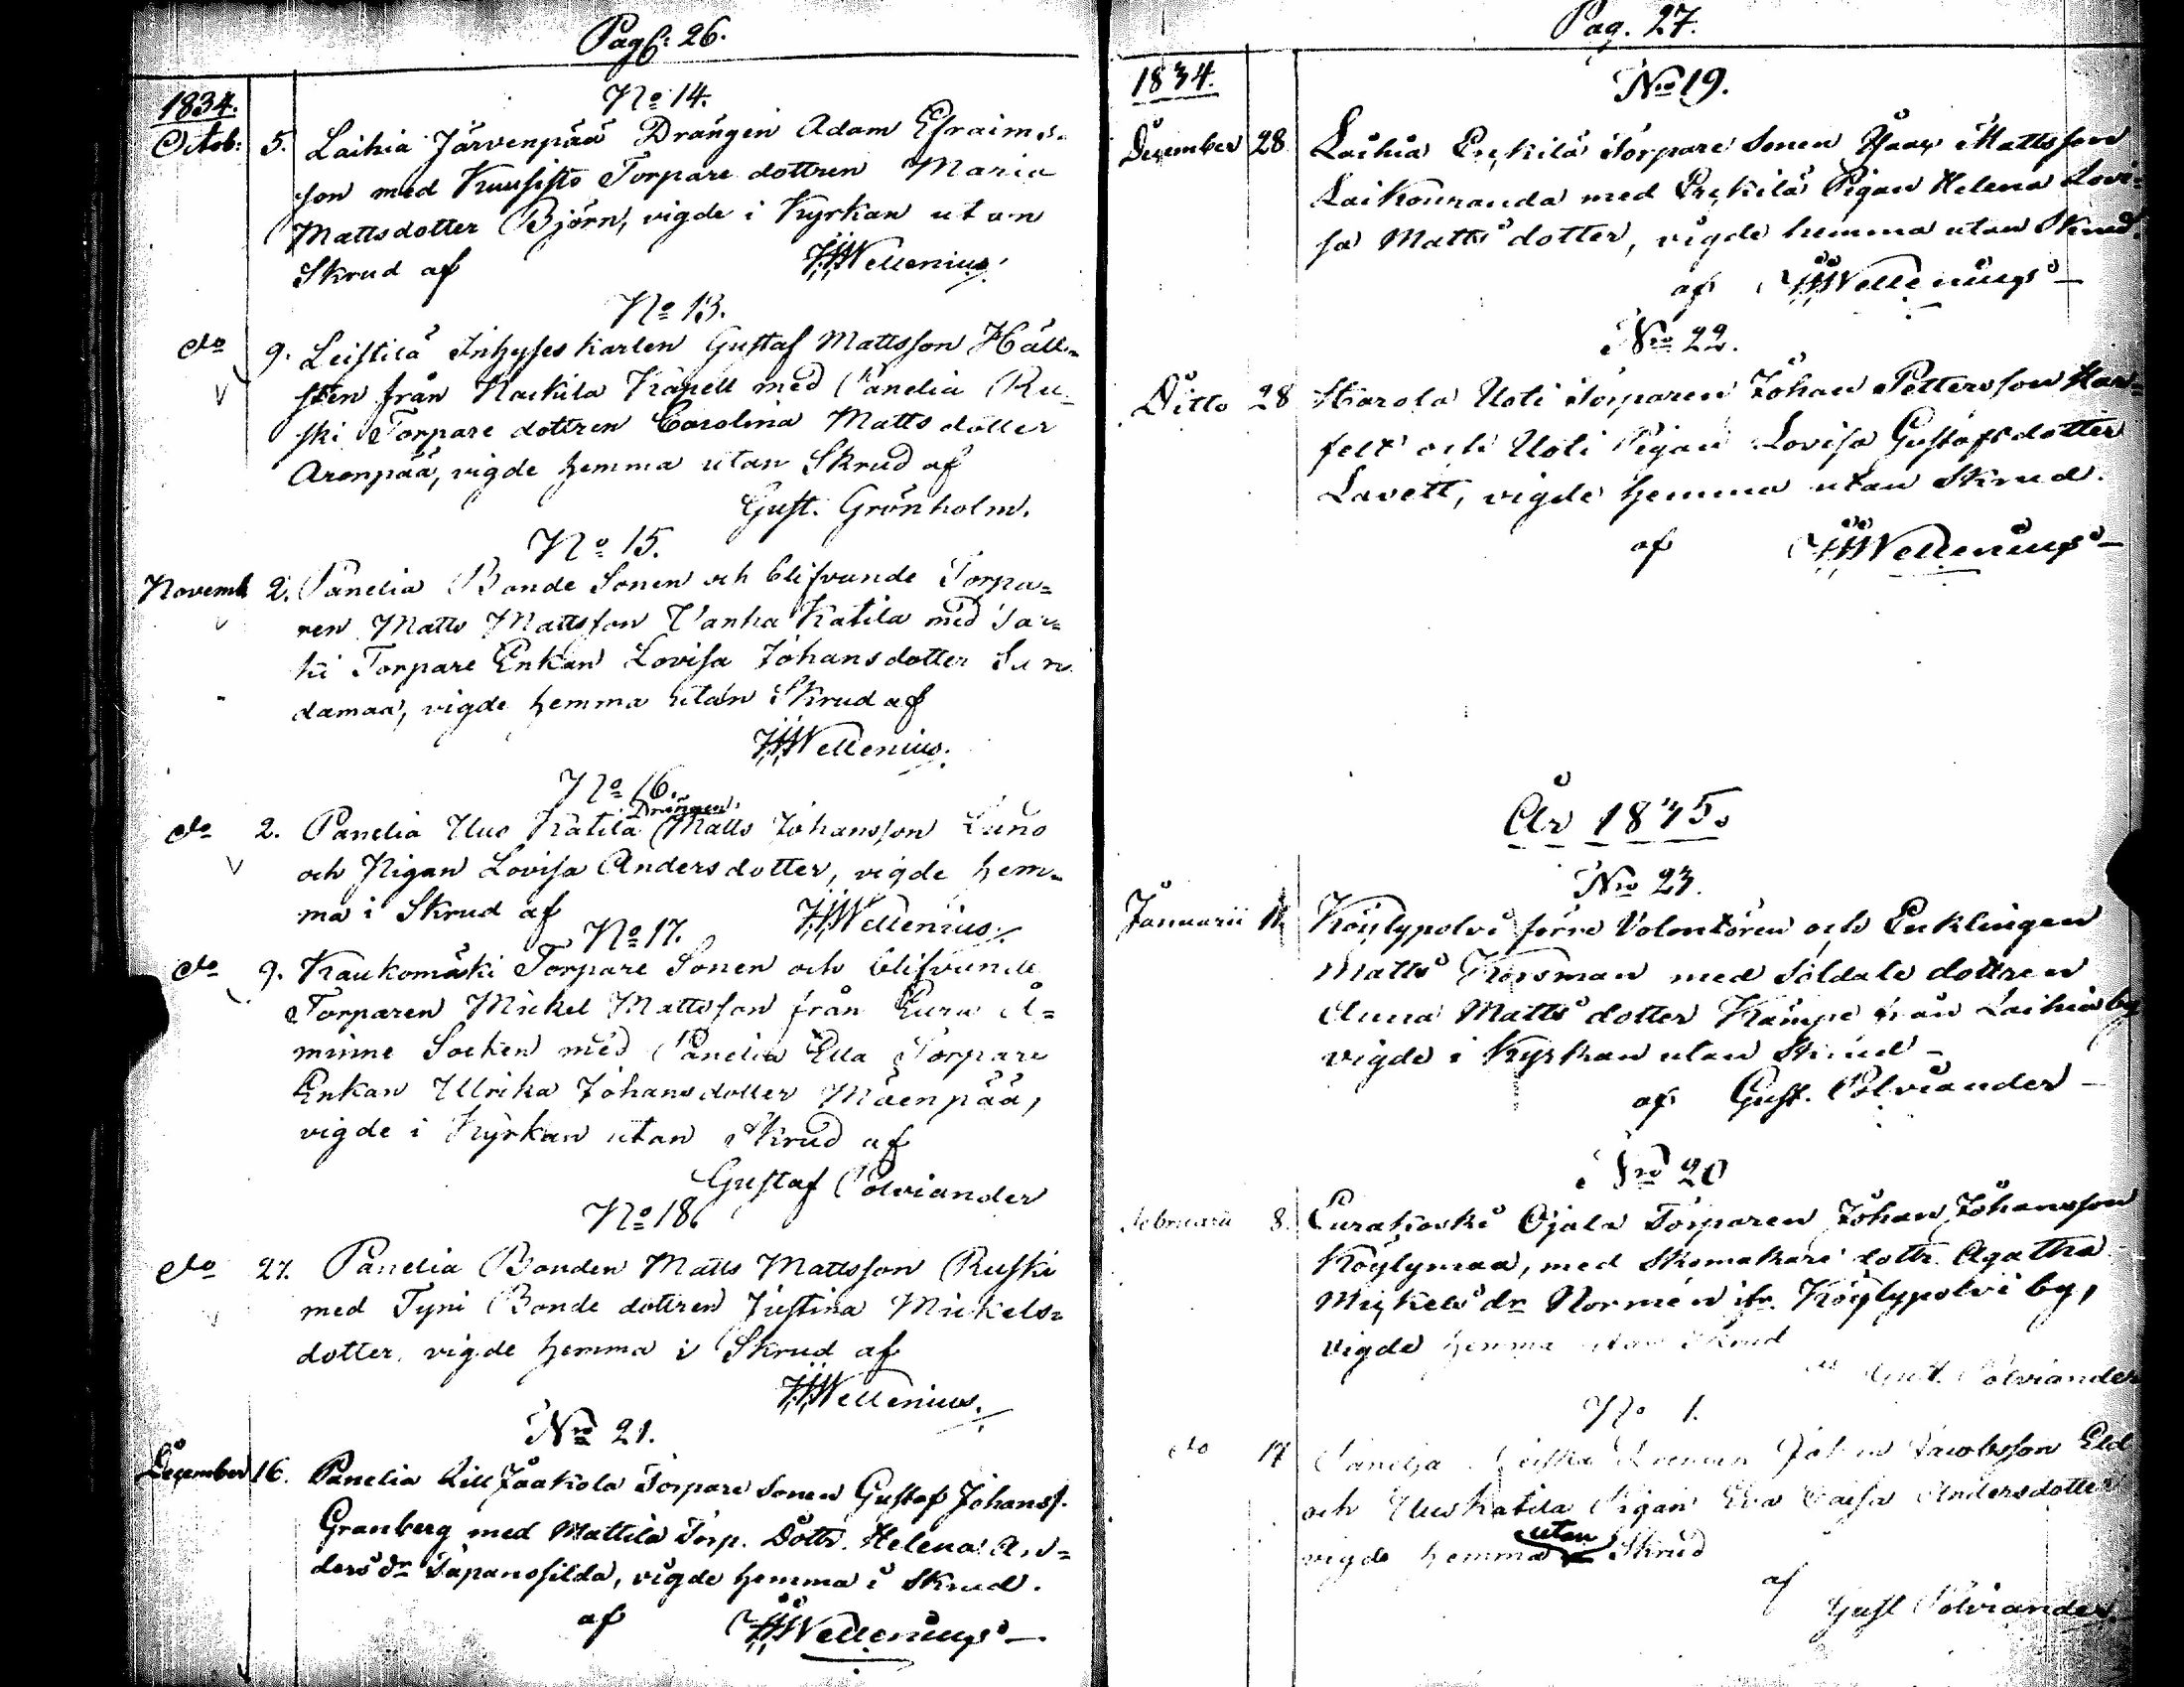 Pag: 26.
1834.
No 14.
Octob: 5. Laihia Järvenpää Drängen Adam Efraims-
son med Kuusisto Torpare dottren Maria
Mattsdotter Björn, vigde i Kyrkan utan
Skrud af HHWellenius.
No 13.
do 9. Leistilä Inhyses karlen Gustaf Mattsson Häll-
sten från Kapell med Panelia Ru-
ski Torpare dottren Carolina Mattsdotter
Aronpää, vigde hemma utan Skrud af
Gust. Grönholm.
No 15.
Novemb 2. Panelia Bonde Sonen och blifvande Torpa=
ren Matts Mattsson Vanha Katila med
Torpare Enkan Lovisa Johansdotter
damaa, vigde hemma utan Skrud af
HHWellenius.
No 16.
Drängen
do 2. Panelia Uus Katila Matts Johansson
och Pigan Lovisa Andersdotter, vigde hem-
ma i Skrud af HHWellenius.
No 17.
do 9. Kaukomäki Torpare Sonen och blifvande
Torparen Mickel Mattsson från Eura Å=
minne Socken med Panelia Ella Torpare
Enkan Ulrika Johansdotter Mäenpää,
vigde i Kyrkan utan Skrud af
Gustaf Polviander
No 18.
do 27. Panelia Bonden Matts Mattsson Ruski
med Tyni Bonde dottren Justina Mickels=
dotter, vigde hemma i Skrud af
HHWellenius.
No 21.
December 16. Panelia Lill Jaakola Torpare Sonen Gustaf Johanss.
Granberg med Mattila Torp. Dottr. Helena An=
ders dr Tapanosilda, vigde hemma i Skrud.
af HHWellenius
Pag. 27.
1834.
No 19.
December 28 Laihia Torpare Sonen Isaac Mattsson
Laikouranda med Pigan Helena Lovi-
sa Mattsdotter, vigde hemma utan Skrud.
af HHWellenius
No 22.
Ditto 28 Harola Uoti Torparen Johan Pettersson Har-
felt och Uoti Pigan Lovisa Gustafsdotter
Lavett, vigde hemma utan Skrud.
af HHWellenius
År 1835.
No 23.
Januarii Köylypolvi förre Volontören och Enklingen
Matts Korsman med Soldate dottren
Anna Matts dotter Kämpe från Laihia by
vigde i Kyrkan utan Skrud
af Gust. Polviander
No 20
Februarii 8. Eurakoski Ojala Torparen Johan Johansson
Köylymaa, med Skomakare dottr. Agatha
Mickels dr Normén ifr. Köylypolvi by,
vigde hemma utan Skrud
af Gust. Polviander
No 1.
do 17 Panelia Johan Jacobsson
och Uus Katila Pigan Eva Caisa Andersdotter
utan
vigde hemma Skrud
af
Gust Polviander